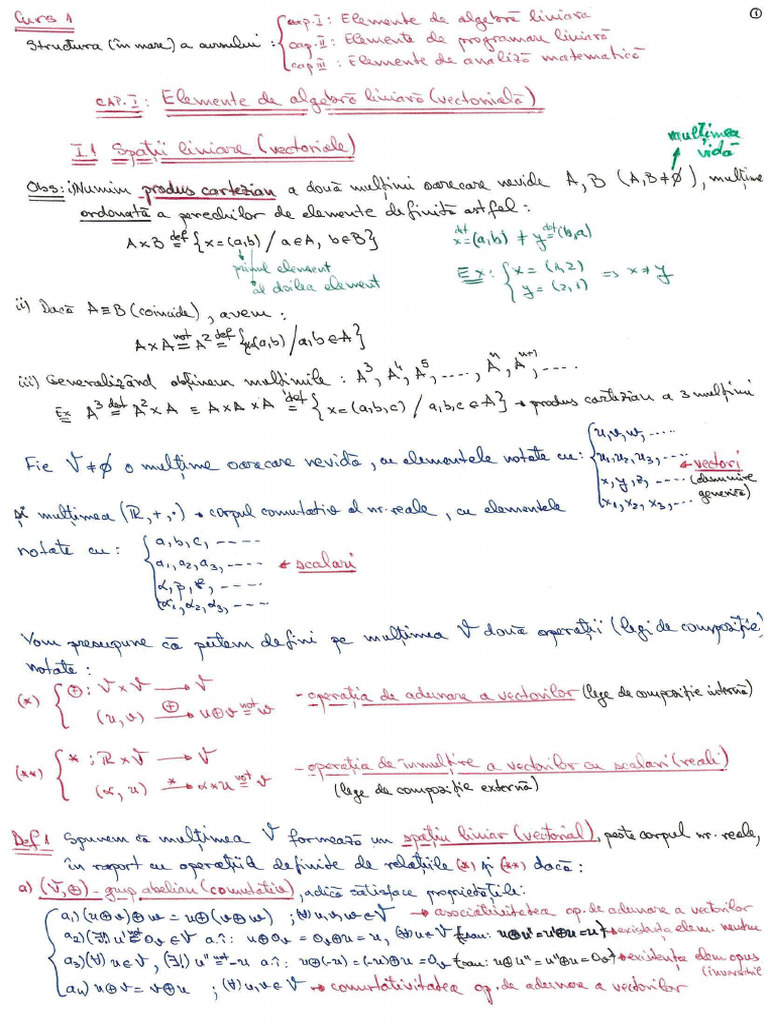 Curs 1
①
Structura (în mare) a cursului : { cap. I : Elemente de algebră liniară
cap. II : Elemente de programare liniară
cap III : Elemente de analiză matematică
CAP. I : Elemente de algebră liniară (vectorială)
I.1 Spații liniare (vectoriale)
mulțimea vidă
Obs: i) Numim produs cartezian a două mulțimi oarecare nevide A, B (A,B≠∅), mulțimea
ordonată a perechilor de elemente definită astfel :
A×B def= {x=(a,b) / a∈A, b∈B}
x def= (a,b) ≠ y def= (b,a)
primul element
al doilea element
Ex : { x = (1,2)
y = (2,1) => x≠y
ii) Dacă A≡B (coincide), avem :
A×A not= A² def= {x(a,b) / a,b∈A}
iii) Generalizând obținem mulțimile : A³, A⁴, A⁵, ...., Aⁿ, Aⁿ⁺¹, ....
Ex A³ def= A²×A ≡ A×A×A def= {x=(a,b,c) / a,b,c∈A} → produs cartezian a 3 mulțimi
Fie V≠∅ o mulțime oarecare nevidă, cu elementele notate cu: { u,v,w, ....
u₁,u₂,u₃, ....
x,y,z, ....
x₁,x₂,x₃, ...
← vectori
(denumire generică)
și mulțimea (ℝ,+,·) → corpul comutativ al nr. reale, cu elementele
notate cu : { a,b,c, ----
a₁,a₂,a₃, ----
α,β,γ, ----
α₁,α₂,α₃, ----
← scalari
Vom presupune că putem defini pe mulțimea V două operații (legi de compoziție)
notate :
(*) { ⊕ : V×V → V
(u,v) ⊕→ u⊕v not= w
- operația de adunare a vectorilor (lege de compoziție internă)
(**) { * : ℝ×V → V
(α,u) *→ α*u not= v
- operația de înmulțire a vectorilor cu scalari (reali)
(lege de compoziție externă)
Def 1 Spunem că mulțimea V formează un spațiu liniar (vectorial), peste corpul nr. reale,
în raport cu operațiile definite de relațiile (*) și (**) dacă :
a) (V,⊕) - grup abelian (comutativ), adică satisface proprietățile:
a₁) (u⊕v)⊕w = u⊕(v⊕w) ; (∀) u,v,w∈V → asociativitatea op. de adunare a vectorilor
a₂) (∃!) u' not= 0ᵥ∈V a.î: u⊕0ᵥ = 0ᵥ⊕u = u, (∀)u∈V {sau: u⊕u' = u'⊕u = u} → existența elem. neutru
a₃) (∀) u∈V, (∃!) u'' not= -u a.î: u⊕(-u) = (-u)⊕u = 0ᵥ {sau: u⊕u'' = u''⊕u = 0ᵥ} → existența elem opus
a₄) u⊕v = v⊕u ; (∀) u,v∈V → comutativitatea op. de adunare a vectorilor